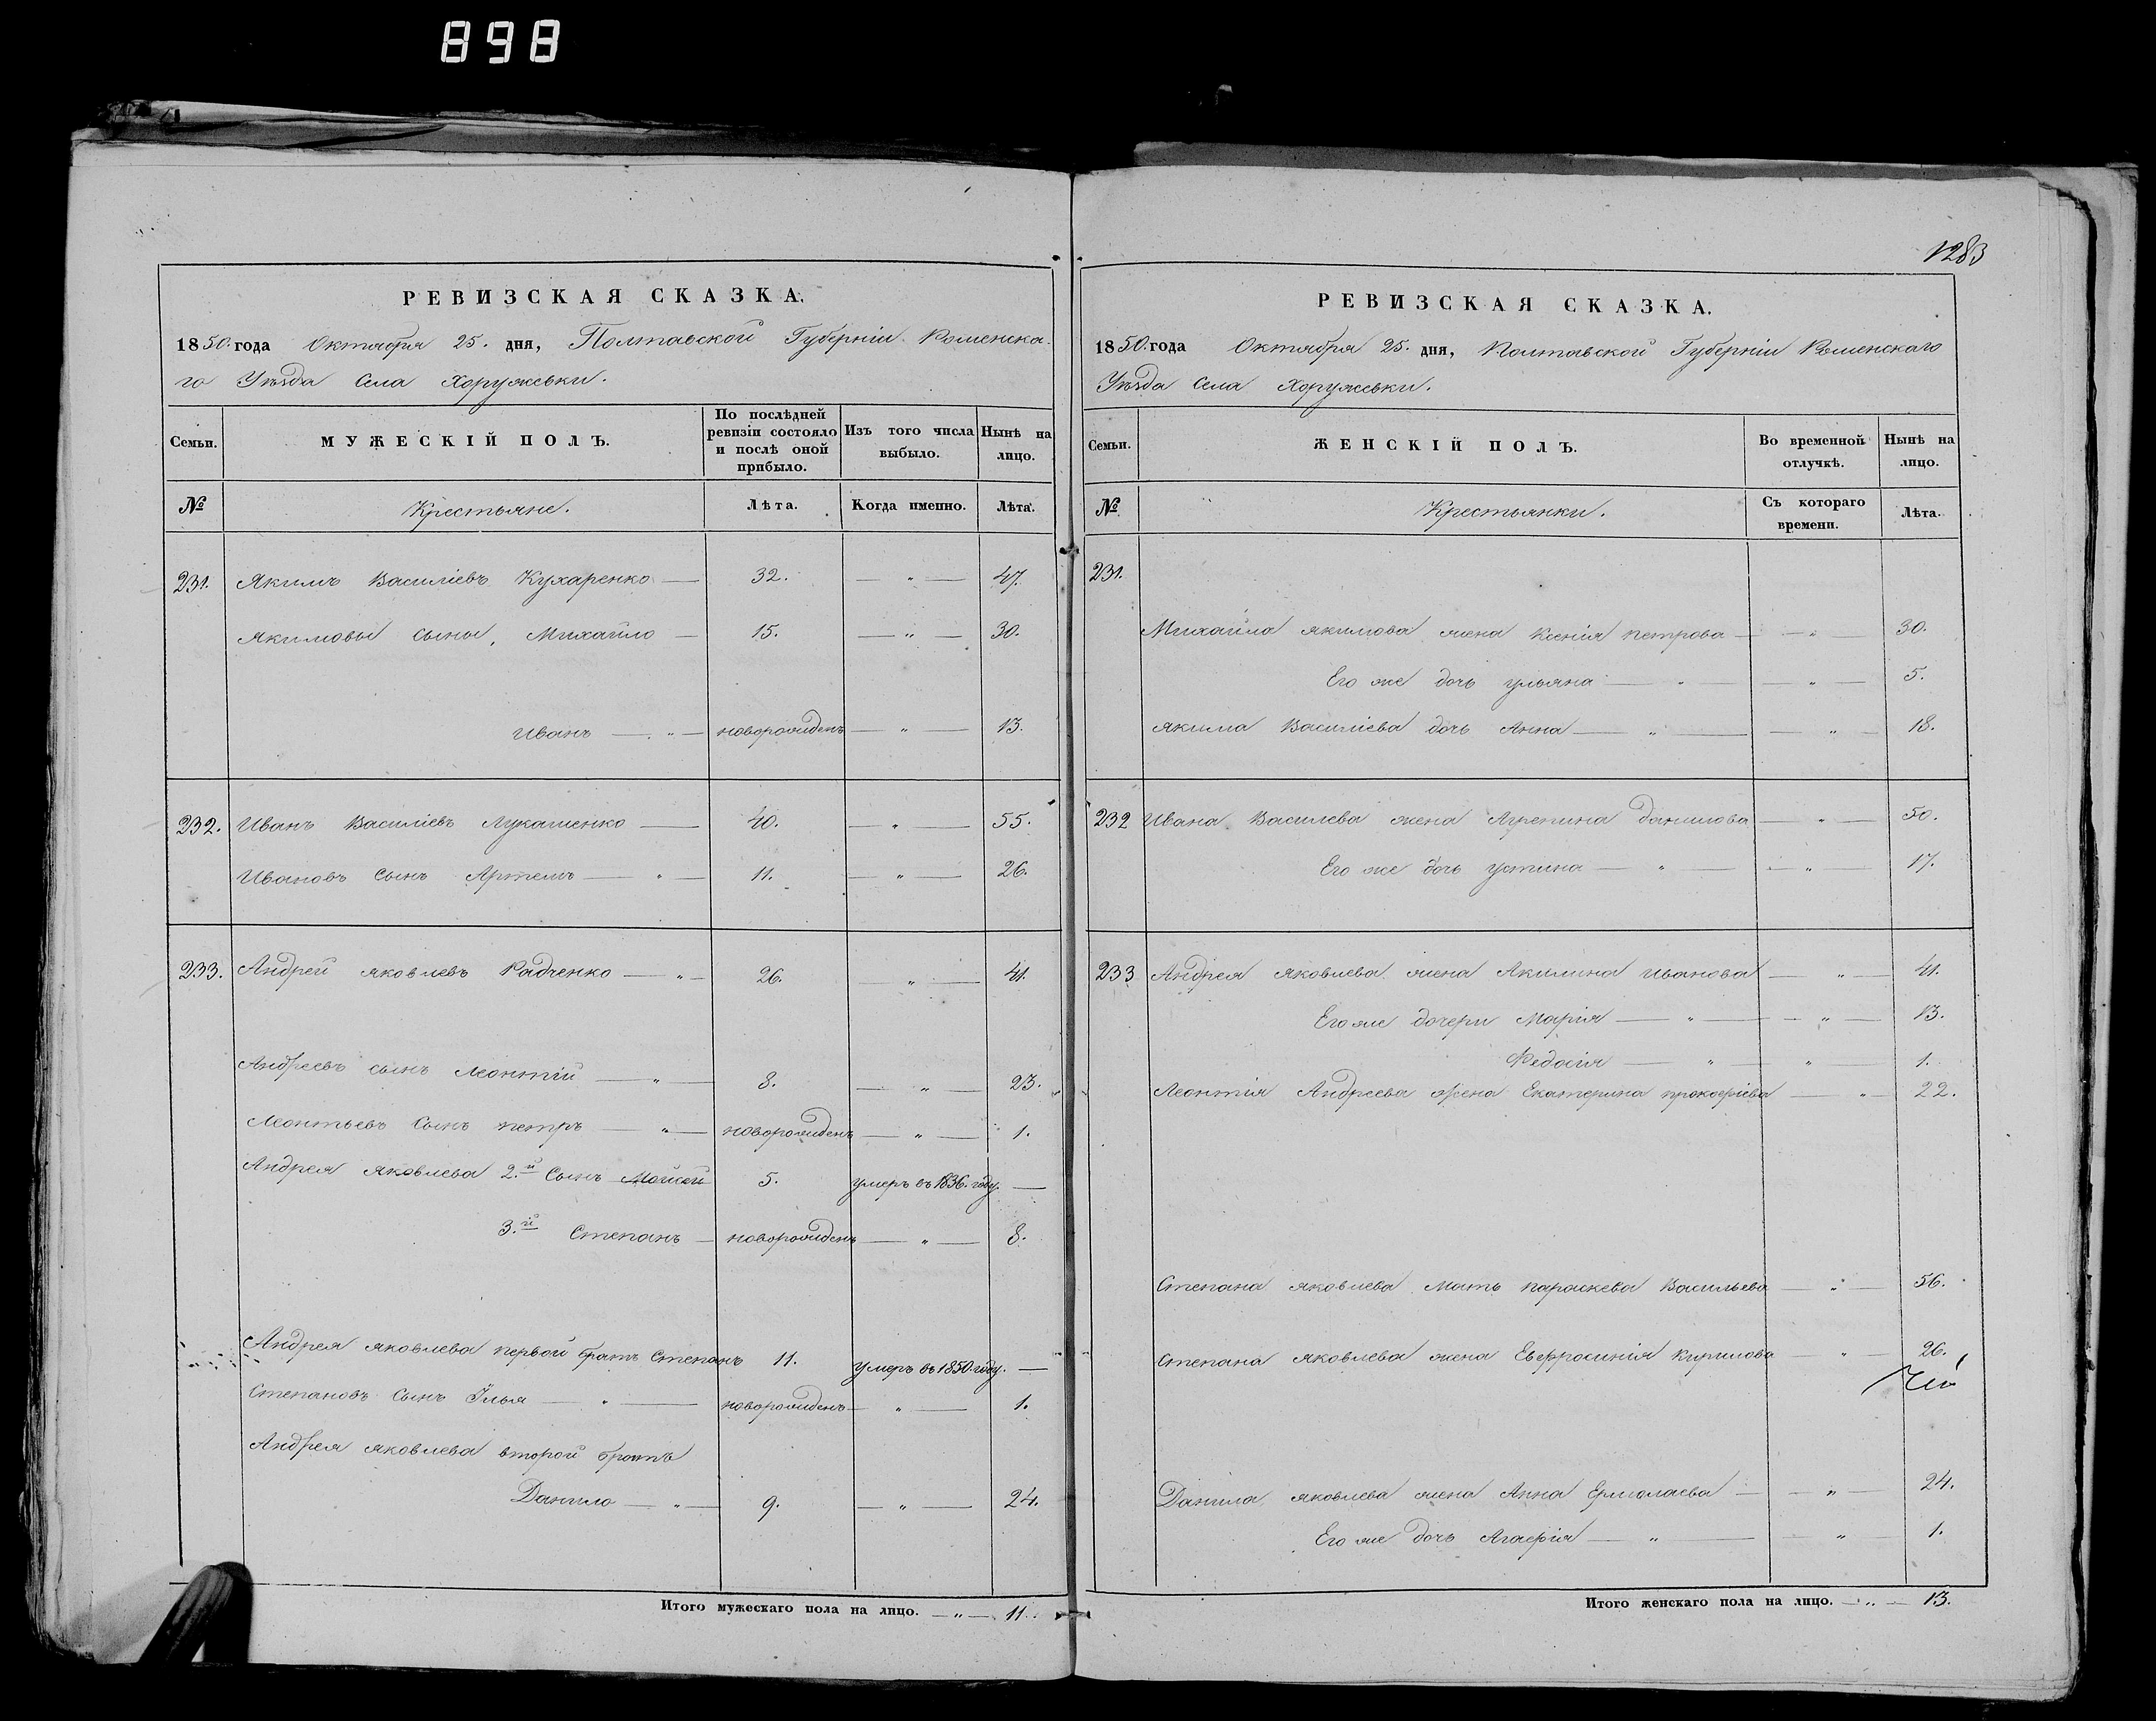 898
РЕВИЗСКАЯ СКАЗКА.
1850. года Октября 25. дня, Полтавской Губерніи Роменска-
го Уѣзда Села Хоружевки.
Семьи.
МУЖЕСКІЙ ПОЛЪ.
По послѣдней ревизіи состояло и послѣ оной прибыло.
Изъ того числа выбыло.
Нынѣ на лицо.
№ Крестьяне. Лѣта. Когда именно. Лѣта.
231. Якимъ Василіевъ Кухаренко — 32. — „ — 47.
Якимовы сыны, Михайло — 15. — „ — 30.
Иванъ — „ — новорожденъ — „ — 13.
232. Иванъ Василіевъ Лукашенко — 40. — „ — 55.
Ивановъ Сынъ Артемъ — „ — 11. — „ — 26.
233. Андрей яковлевъ Радченко — „ — 26. — „ — 41.
Андреевъ сынъ Леонтій — „ — 8. — „ — 23.
Леонтьевъ Сынъ петръ — „ — новорожденъ — „ — 1.
Андрея яковлева 2.й Сынъ Мойсей 5. умеръ въ 1836. году. —
3.й Степанъ — новорожденъ — „ — 8.
Андрея яковлева первой братъ Степанъ 11. умеръ въ 1850 году. —
Степановъ Сынъ Илья — „ — новорожденъ — „ — 1.
Андрея яковлева второй братъ
Данило — „ — 9. — „ — 24.
Итого мужескаго пола на лицо. — „ — 11.
1283
РЕВИЗСКАЯ СКАЗКА.
1850. года Октября 25. дня, Полтавской Губерніи Роменскаго
Уѣзда Села Хоружевки.
Семьи.
ЖЕНСКІЙ ПОЛЪ.
Во временной отлучкѣ.
Нынѣ на лицо.
№ Крестьянки. Съ котораго времени. Лѣта.
231.
Михайла якимова жена Ксенія петрова — „ — 30.
Его же дочь ульяна — „ — „ — 5.
якима Василіева дочь Анна — „ — „ — 18.
232 Ивана Василева жена Агрепина Данилова — „ — 50.
Его же дочь устина — „ — „ — 17.
233 Андрея яковлева жена Акилина иванова — „ — 41.
Его же дочери Марія — „ — „ — 13.
Федосія — „ — „ — 1.
Леонтія Андреева жена Екатерина прокофіева — „ — 22.
Степана яковлева Мать параскева Васильева — „ — 56.
Степана яковлева жена Евфросинія Кирилова — „ — 26.
Данила яковлева жена Анна Ермолаева — „ — 24.
Его же дочь Агафія — „ — „ 1.
Итого женскаго пола на лицо. — „ — 13.